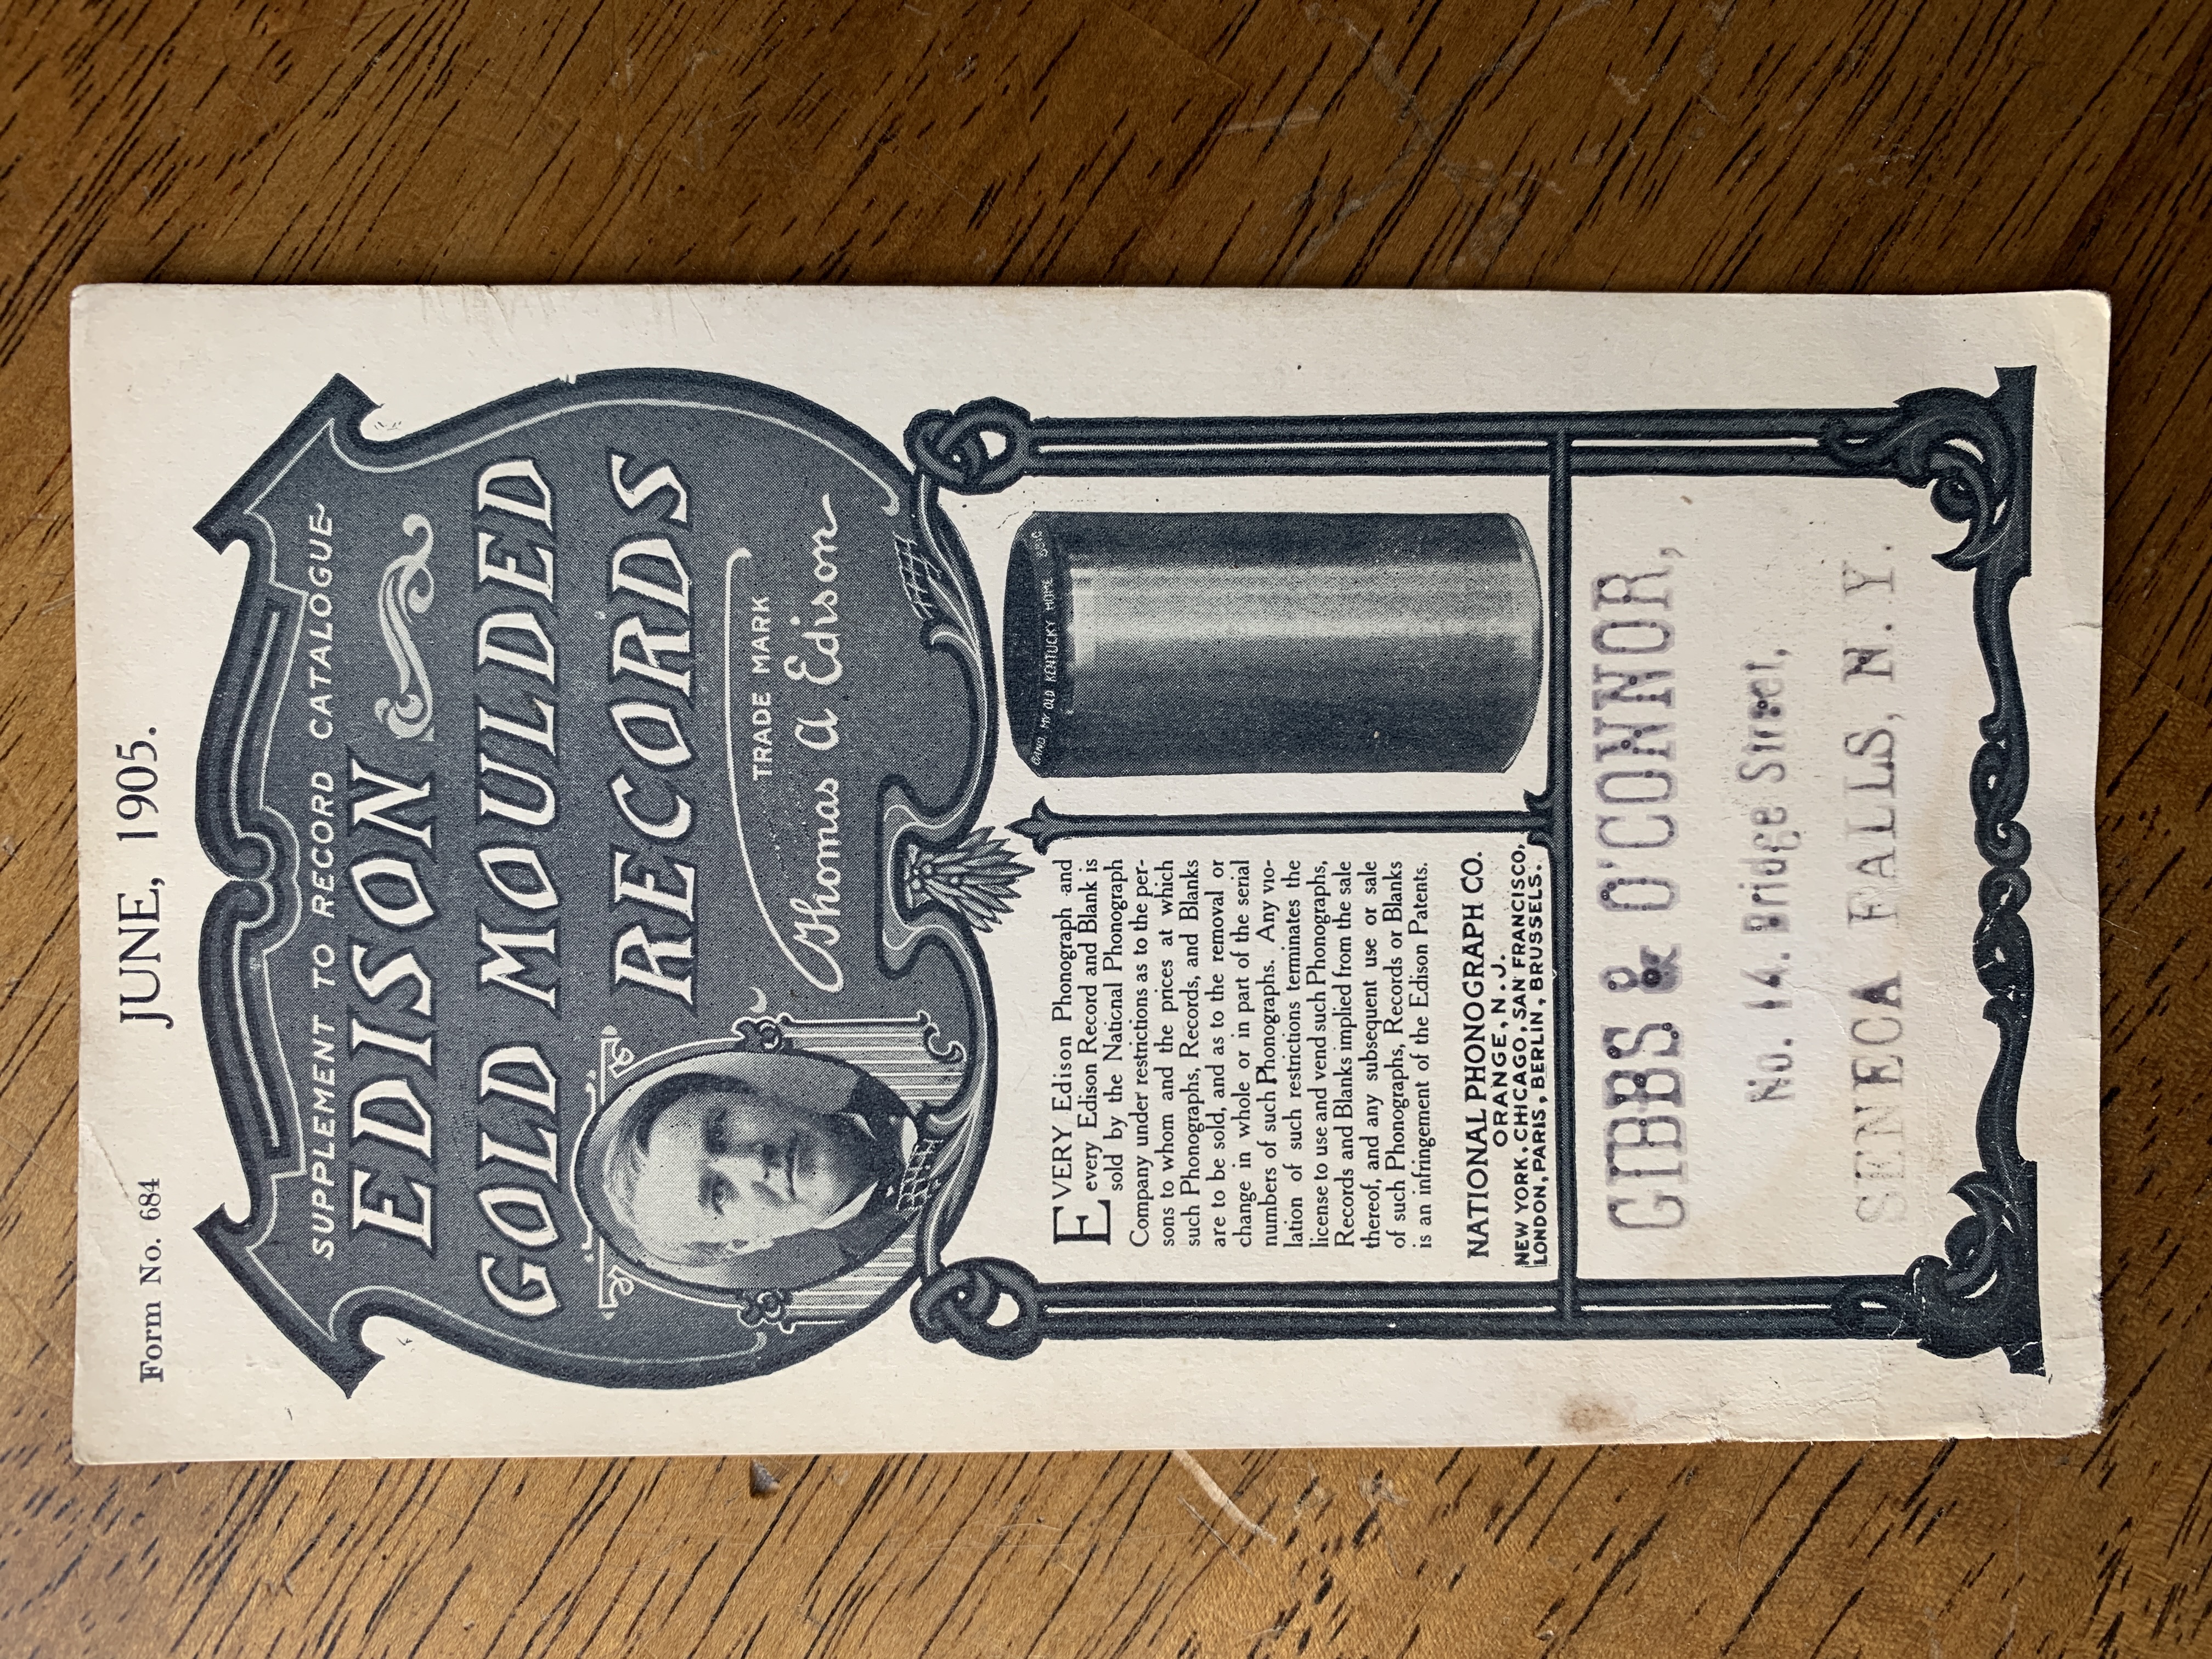 Form No. 684
JUNE, 1905.
SUPPLEMENT TO RECORD CATALOGUE
EDISON
GOLD MOULDED
RECORDS
TRADE MARK
Thomas A Edison
EVERY Edison Phonograph and
every Edison Record and Blank is
sold by the National Phonograph
Company under restrictions as to the per-
sons to whom and the prices at which
such Phonographs, Records, and Blanks
are to be sold, and as to the removal or
change in whole or in part of the serial
numbers of such Phonographs. Any vio-
lation of such restrictions terminates the
license to use and vend such Phonographs,
Records and Blanks implied from the sale
thereof, and any subsequent use or sale
of such Phonographs, Records or Blanks
is an infringement of the Edison Patents.
NATIONAL PHONOGRAPH CO.
ORANGE, N.J.
NEW YORK, CHICAGO, SAN FRANCISCO,
LONDON, PARIS, BERLIN, BRUSSELS.
MY OLD KENTUCKY HOME
GIBBS & O'CONNOR,
No. 14. Bridge Street,
SENECA FALLS, N. Y.